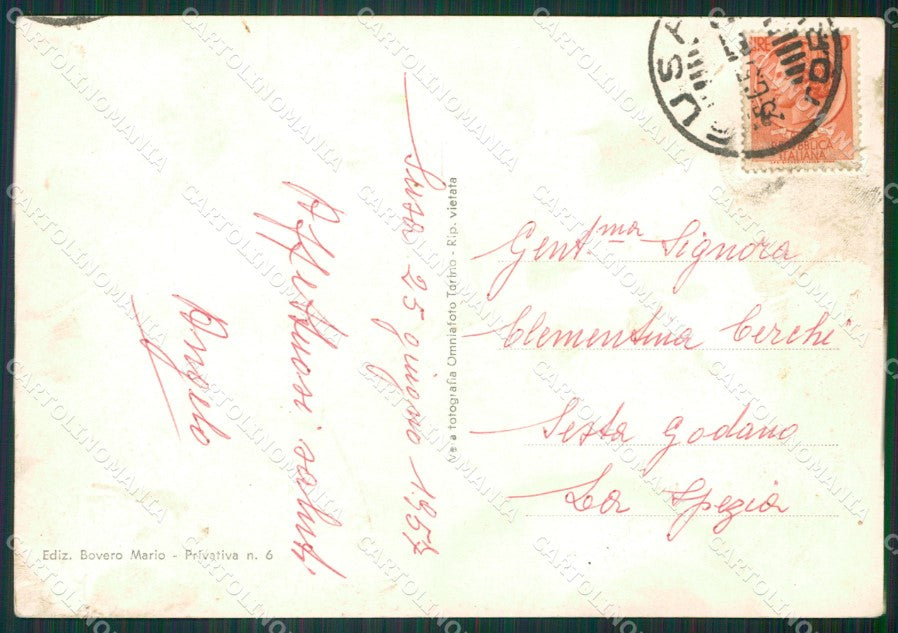 Susa 25 giugno 1957
Affettuosi saluti
Angelo
Ve a fotografia Omniafoto Torino - Rip. vietata
Gent.ma Signora
Clementina Cerchi
Sesta Godano
La Spezia
Ediz. Bovero Mario - Privativa n. 6
SUSA
TOR
REPUBBLICA
ITALIANA
CARTOLINOMANIA